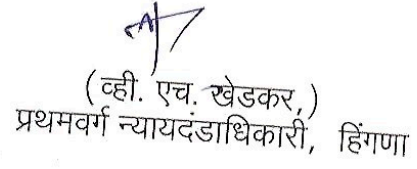 (व्ही. एच. खेडकर,)
प्रथमवर्ग न्यायदंडाधिकारी, हिंगणा